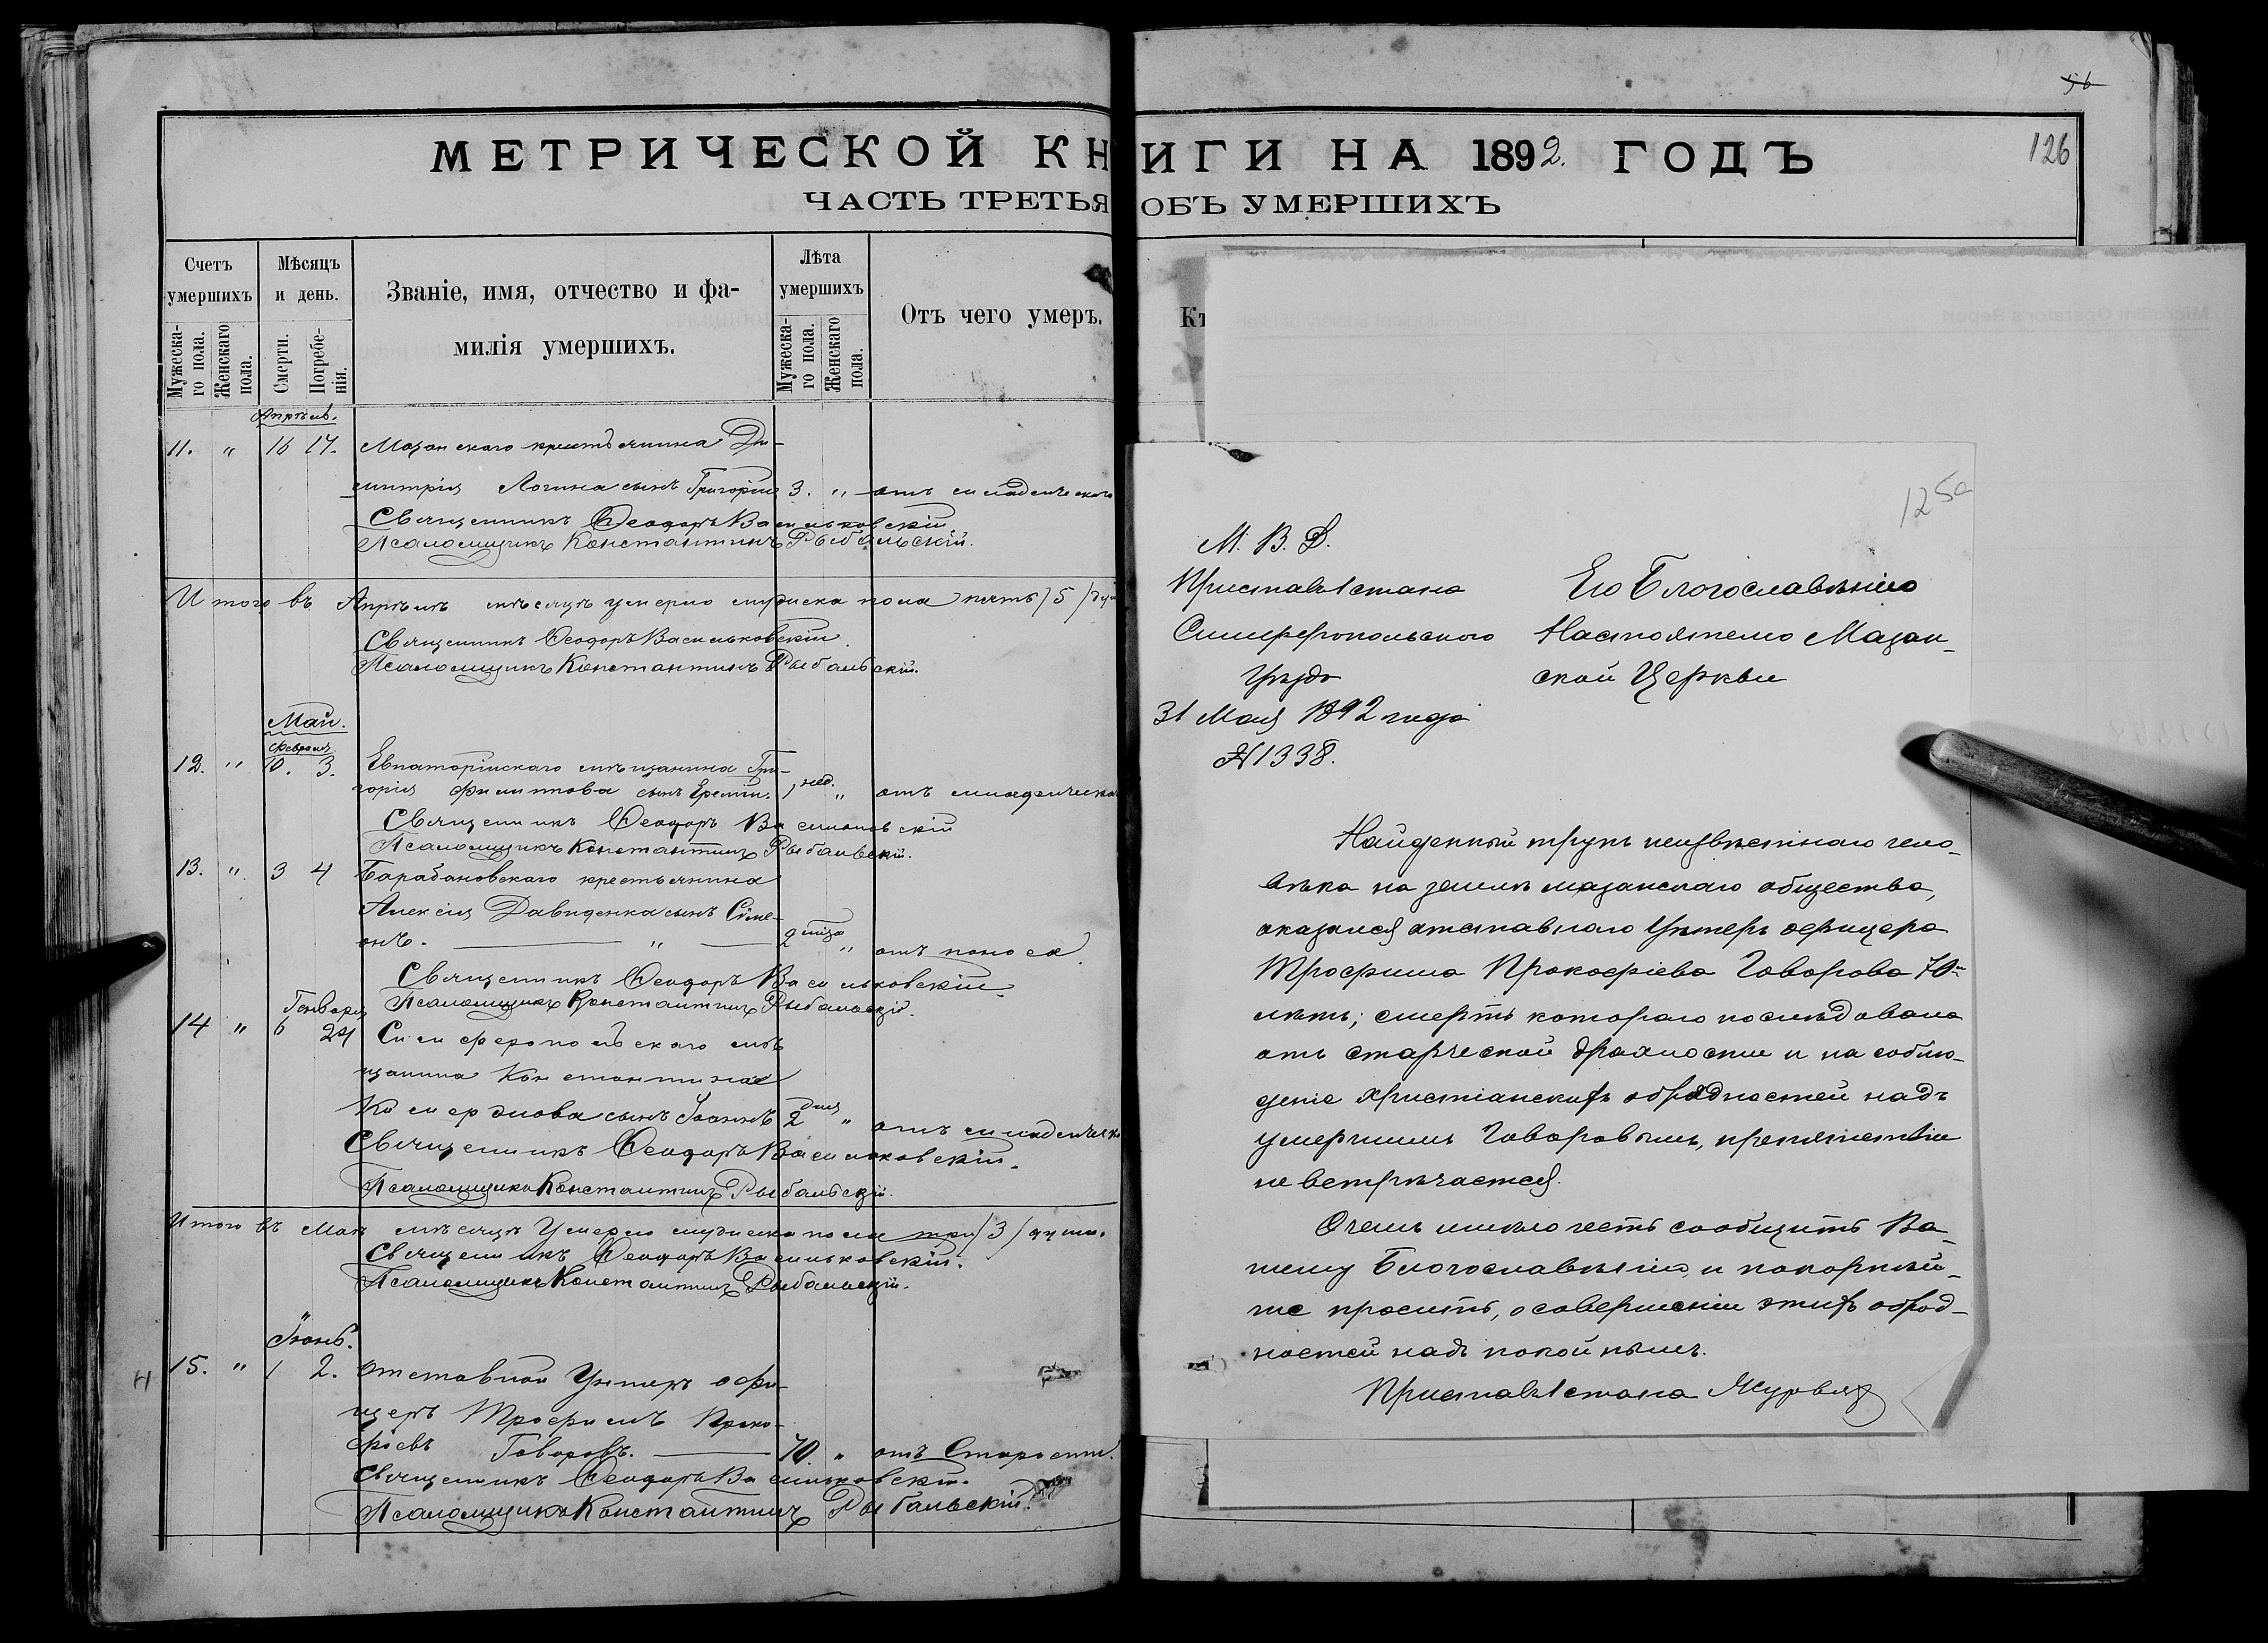 56
МЕТРИЧЕСКОЙ КНИГИ НА 1892. ГОДЪ
126
ЧАСТЬ ТРЕТЬЯ ОБЪ УМЕРШИХЪ
Счетъ умершихъ
Мужеска-го пола.
Женскаго пола.
Мѣсяцъ и день.
Смерти.
Погребе-нія.
Званіе, имя, отчество и фа-
милія умершихъ.
Лѣта умершихъ
Мужеска-го пола.
Женскаго пола.
Отъ чего умеръ.
Апрѣль.
11. " 16 17. Мазанскаго крестьянина Ди-
митрія Логина сынъ Григорій 3. " отъ младенческой
Священникъ Ѳеодоръ Васильковскій.
Псаломщикъ Константинъ Рыбальскій.
Итого въ Апрѣлѣ мѣсяцѣ умерло мужеска пола пять /5/
Священникъ Ѳеодоръ Васильковскій.
Псаломщикъ Константинъ Рыбальскій.
Май.
Февраля
12. " 10. 3. Евпаторійскаго мѣщанина Гри-
горія Филиппова сынъ Еремій. 1 нед. " отъ младенческой
Священникъ Ѳеодоръ Васильковскій
Псаломщикъ Константинъ Рыбальскій.
13. " 3 4 Барабановскаго крестьянина
Алексія Давиденка сынъ Симе-
онъ. " 2 мѣс. " отъ поноса.
Священникъ Ѳеодоръ Васильковскій.
Псаломщикъ Константинъ Рыбальскій.
Января
14 " 6 24 Симферопольскаго мѣ-
щанина Константина
сынъ Іоаннъ 2 дня " отъ младенческ
Священникъ Ѳеодоръ Васильковскій.
Псаломщикъ Константинъ Рыбальскій.
Итого въ Маѣ мѣсяцѣ Умерло мужеска пола три /3/ души.
Священникъ Ѳеодоръ Васильковскій.
Псаломщикъ Константинъ Рыбальскій.
Іюнь.
15. " 1 2. Отставной Унтеръ офи-
церъ Трофимъ Проко-
фіевъ Говоровъ. 70. " отъ Старости.
Священникъ Ѳеодоръ Васильковскій.
Псаломщикъ Константинъ Рыбальскій.
125а
М. В. Д.
Приставъ 1 стана
Симферопольскаго
Уѣзда
31 Мая 1892 года
№ 1338.
Его Благословѣнію
Настоятелю Мазан-
ской Церкви
Найденный трупъ неизвѣстнаго чело-
вѣка на землѣ мазанскаго общества,
оказался отставнаго Унтеръ офицера
Трофима Прокофіева Говорова 70-
лѣтъ; смерть котораго послѣдовала
отъ старческой дряхлости и на соблю-
деніе христіанскихъ обрядностей надъ
умершимъ Говоровымъ, препятствія
не встрѣчается.
О чемъ имѣю честь сообщить Ва-
шему Благословѣнію, и покорнѣй-
ше просить, о совершеніи этихъ обряд-
ностей надъ покойнымъ.
Приставъ 1 стана